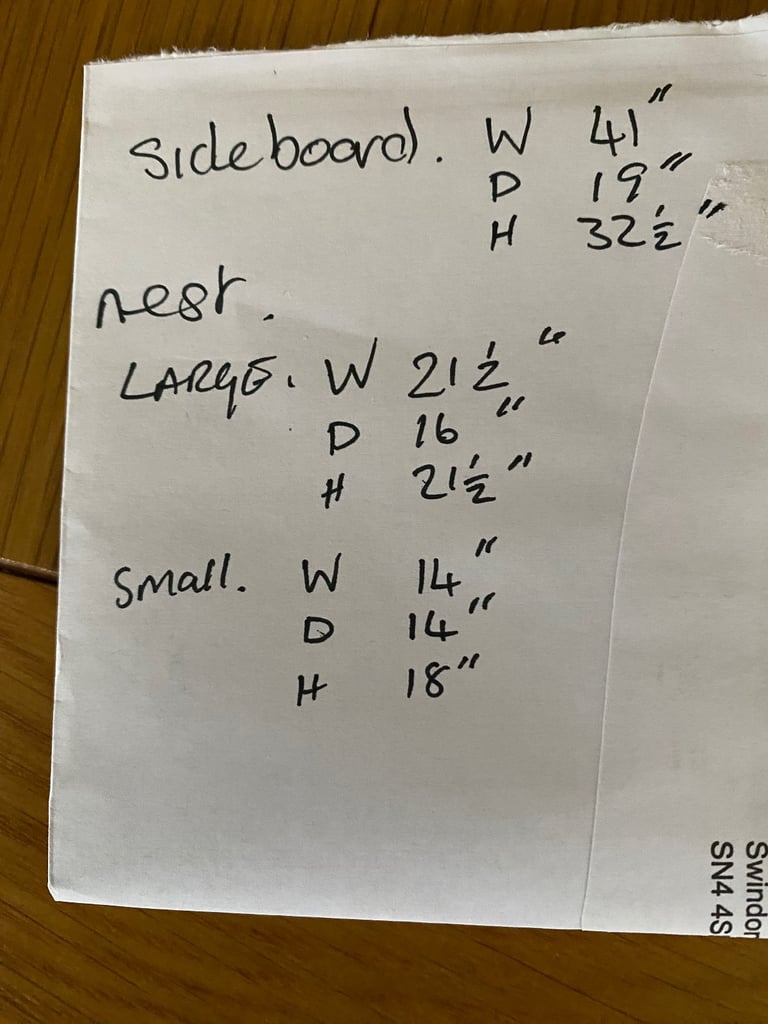 Sideboard. W 41"
D 19"
H 32½"
nest.
LARGE. W 21½"
D 16"
H 21½"
Small. W 14"
D 14"
H 18"
Swindon
SN4 4S